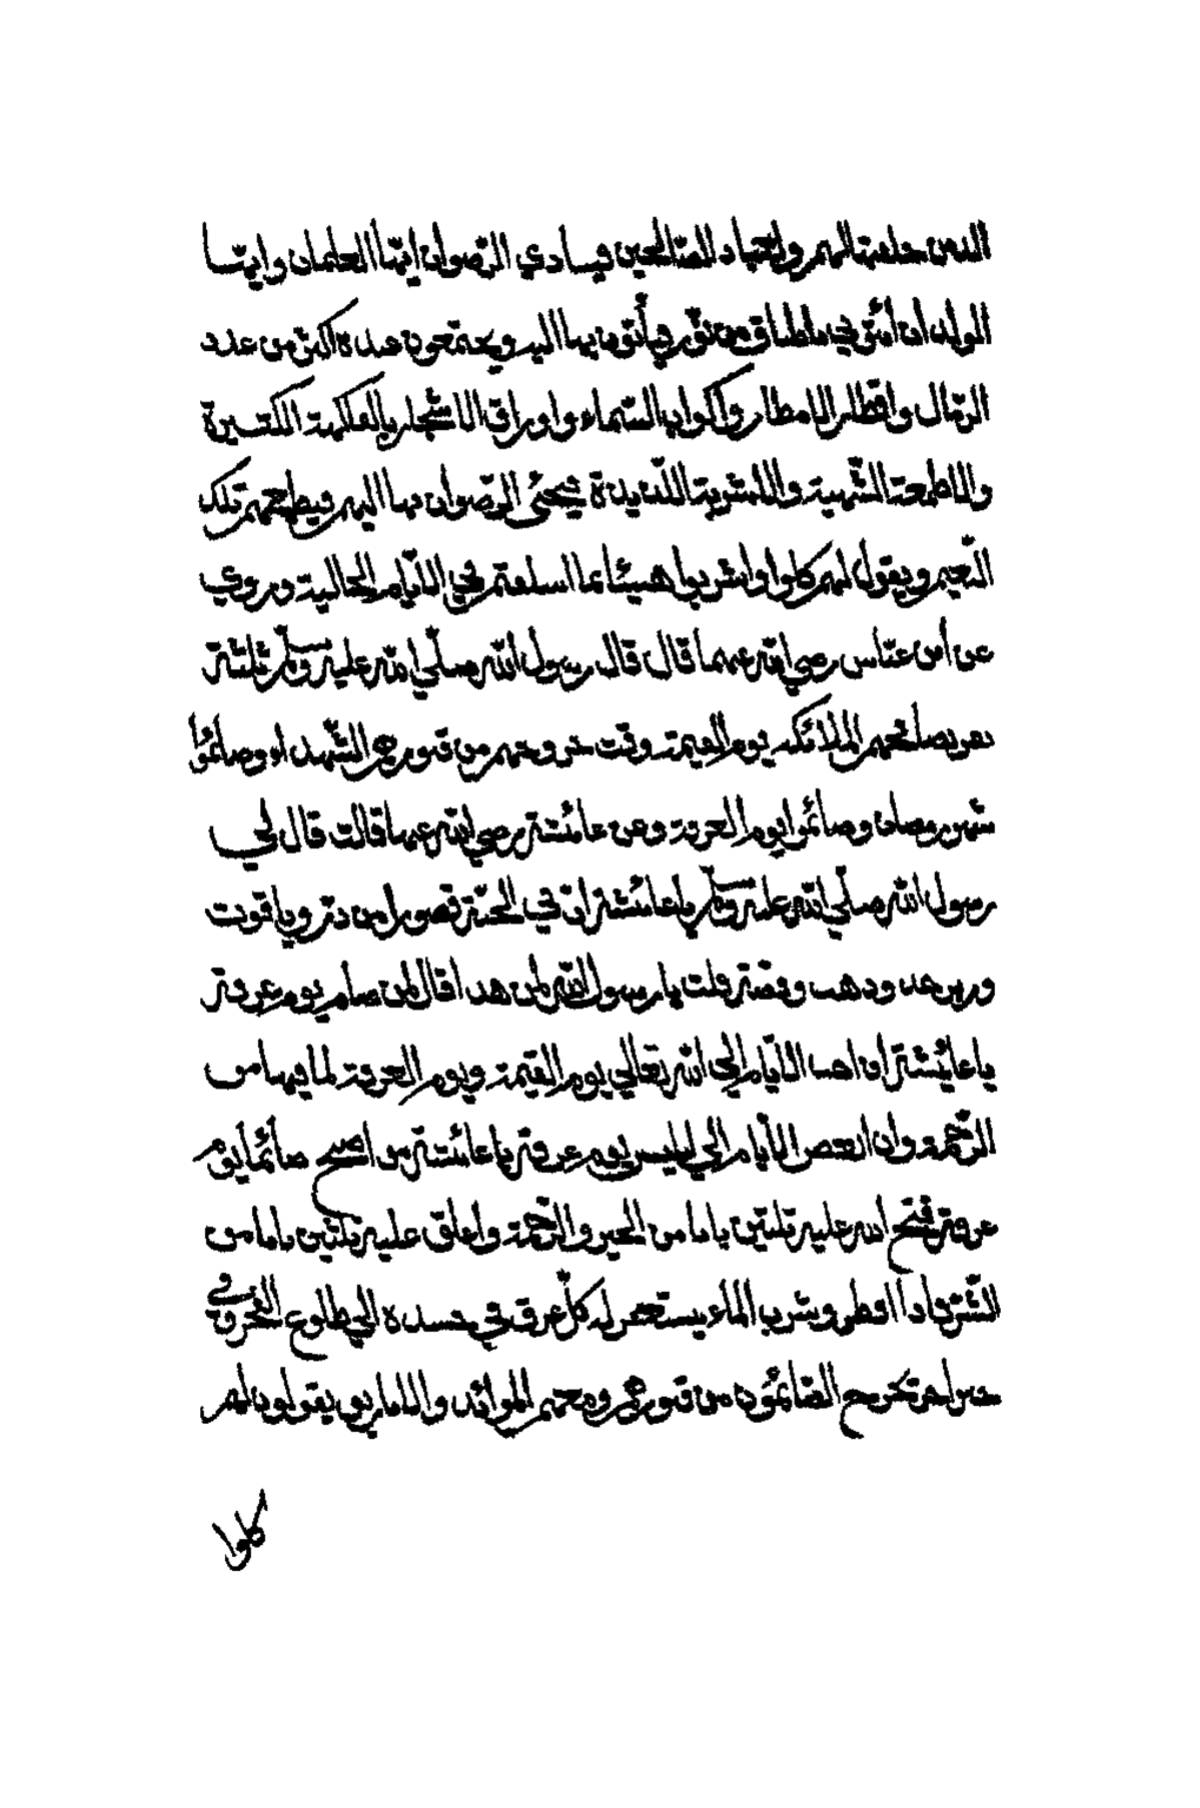 الذين خلقتها لهم ولعباد الصالحين فينادي الرّضوان ايّها الغلمان وايّها
الولدان ان أئتوني باطباق من نّور فيأتون بها اليه ويجتمعون عنده اكثر من عدد
الرّمال واقطار الامطار واكواب السّماء واوراق الاشجار بالفاكهة الكثيرة
والاطعمة الشّهية والاشربة اللّذيذة فيجئ الرّضوان بها اليهم فيطعمهم تلك
النّعيم ويقول لهم كلوا واشربوا هنيئا بما اسلفتم في الايّام الخالية وروي
عن ابن عبّاس رضي الله عنهما قال قال رسول الله صلّي الله عليه وسلّم ثلثة
نفر يصافحهم الملائكة يوم القيمة وقت خروجهم من قبورهم الشّهداء وصائموا
شهر رمضان وصائموا يوم العرفة وعن عائشة رضي الله عنها قالت قال لي
رسول الله صلّي الله عليه وسلّم يا عائشة ان في الجنّة قصورا من درّ وياقوت
وزبرجد وذهب وفضّة قلت يا رسول الله لمن هذا قال لمن صام يوم عرفة
يا عائشة ان احب الايّام الي الله تعالي يوم القيمة ويوم العرفة لما فيها من
الرّحمة وان ابغض الأيام الي ابليس يوم عرفة يا عائشة من اصبح صائما يوم
عرفة فتح الله عليه ثلثين بابا من الخير والرّحمة واغلق عليه ثلثين بابا من
الشّرّ فاذا افطر وشرب الماء يستغفر له كلّ عرق في جسده الي طلوع الفجر وفي
خبر اخر تخرج الصّائمون من قبورهم ومعهم الموائد والاباريق يقولون لهم
كلوا